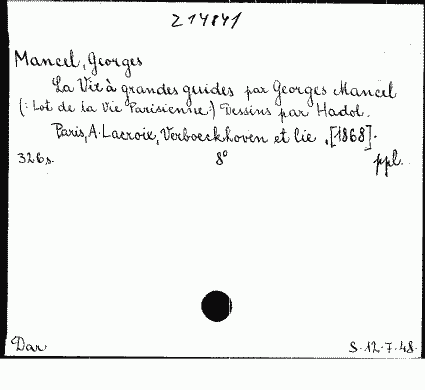 214841
Mancel, Georges
La Vie à grandes guides par Georges Mancel
(: Lot de la Vie Parisienne:) Dessins par Hadol.
Paris, A. Lacroix, Verboeckhoven et Cie, [1868].
326 s. 8° ppl.
Dar S. 12.7.48.